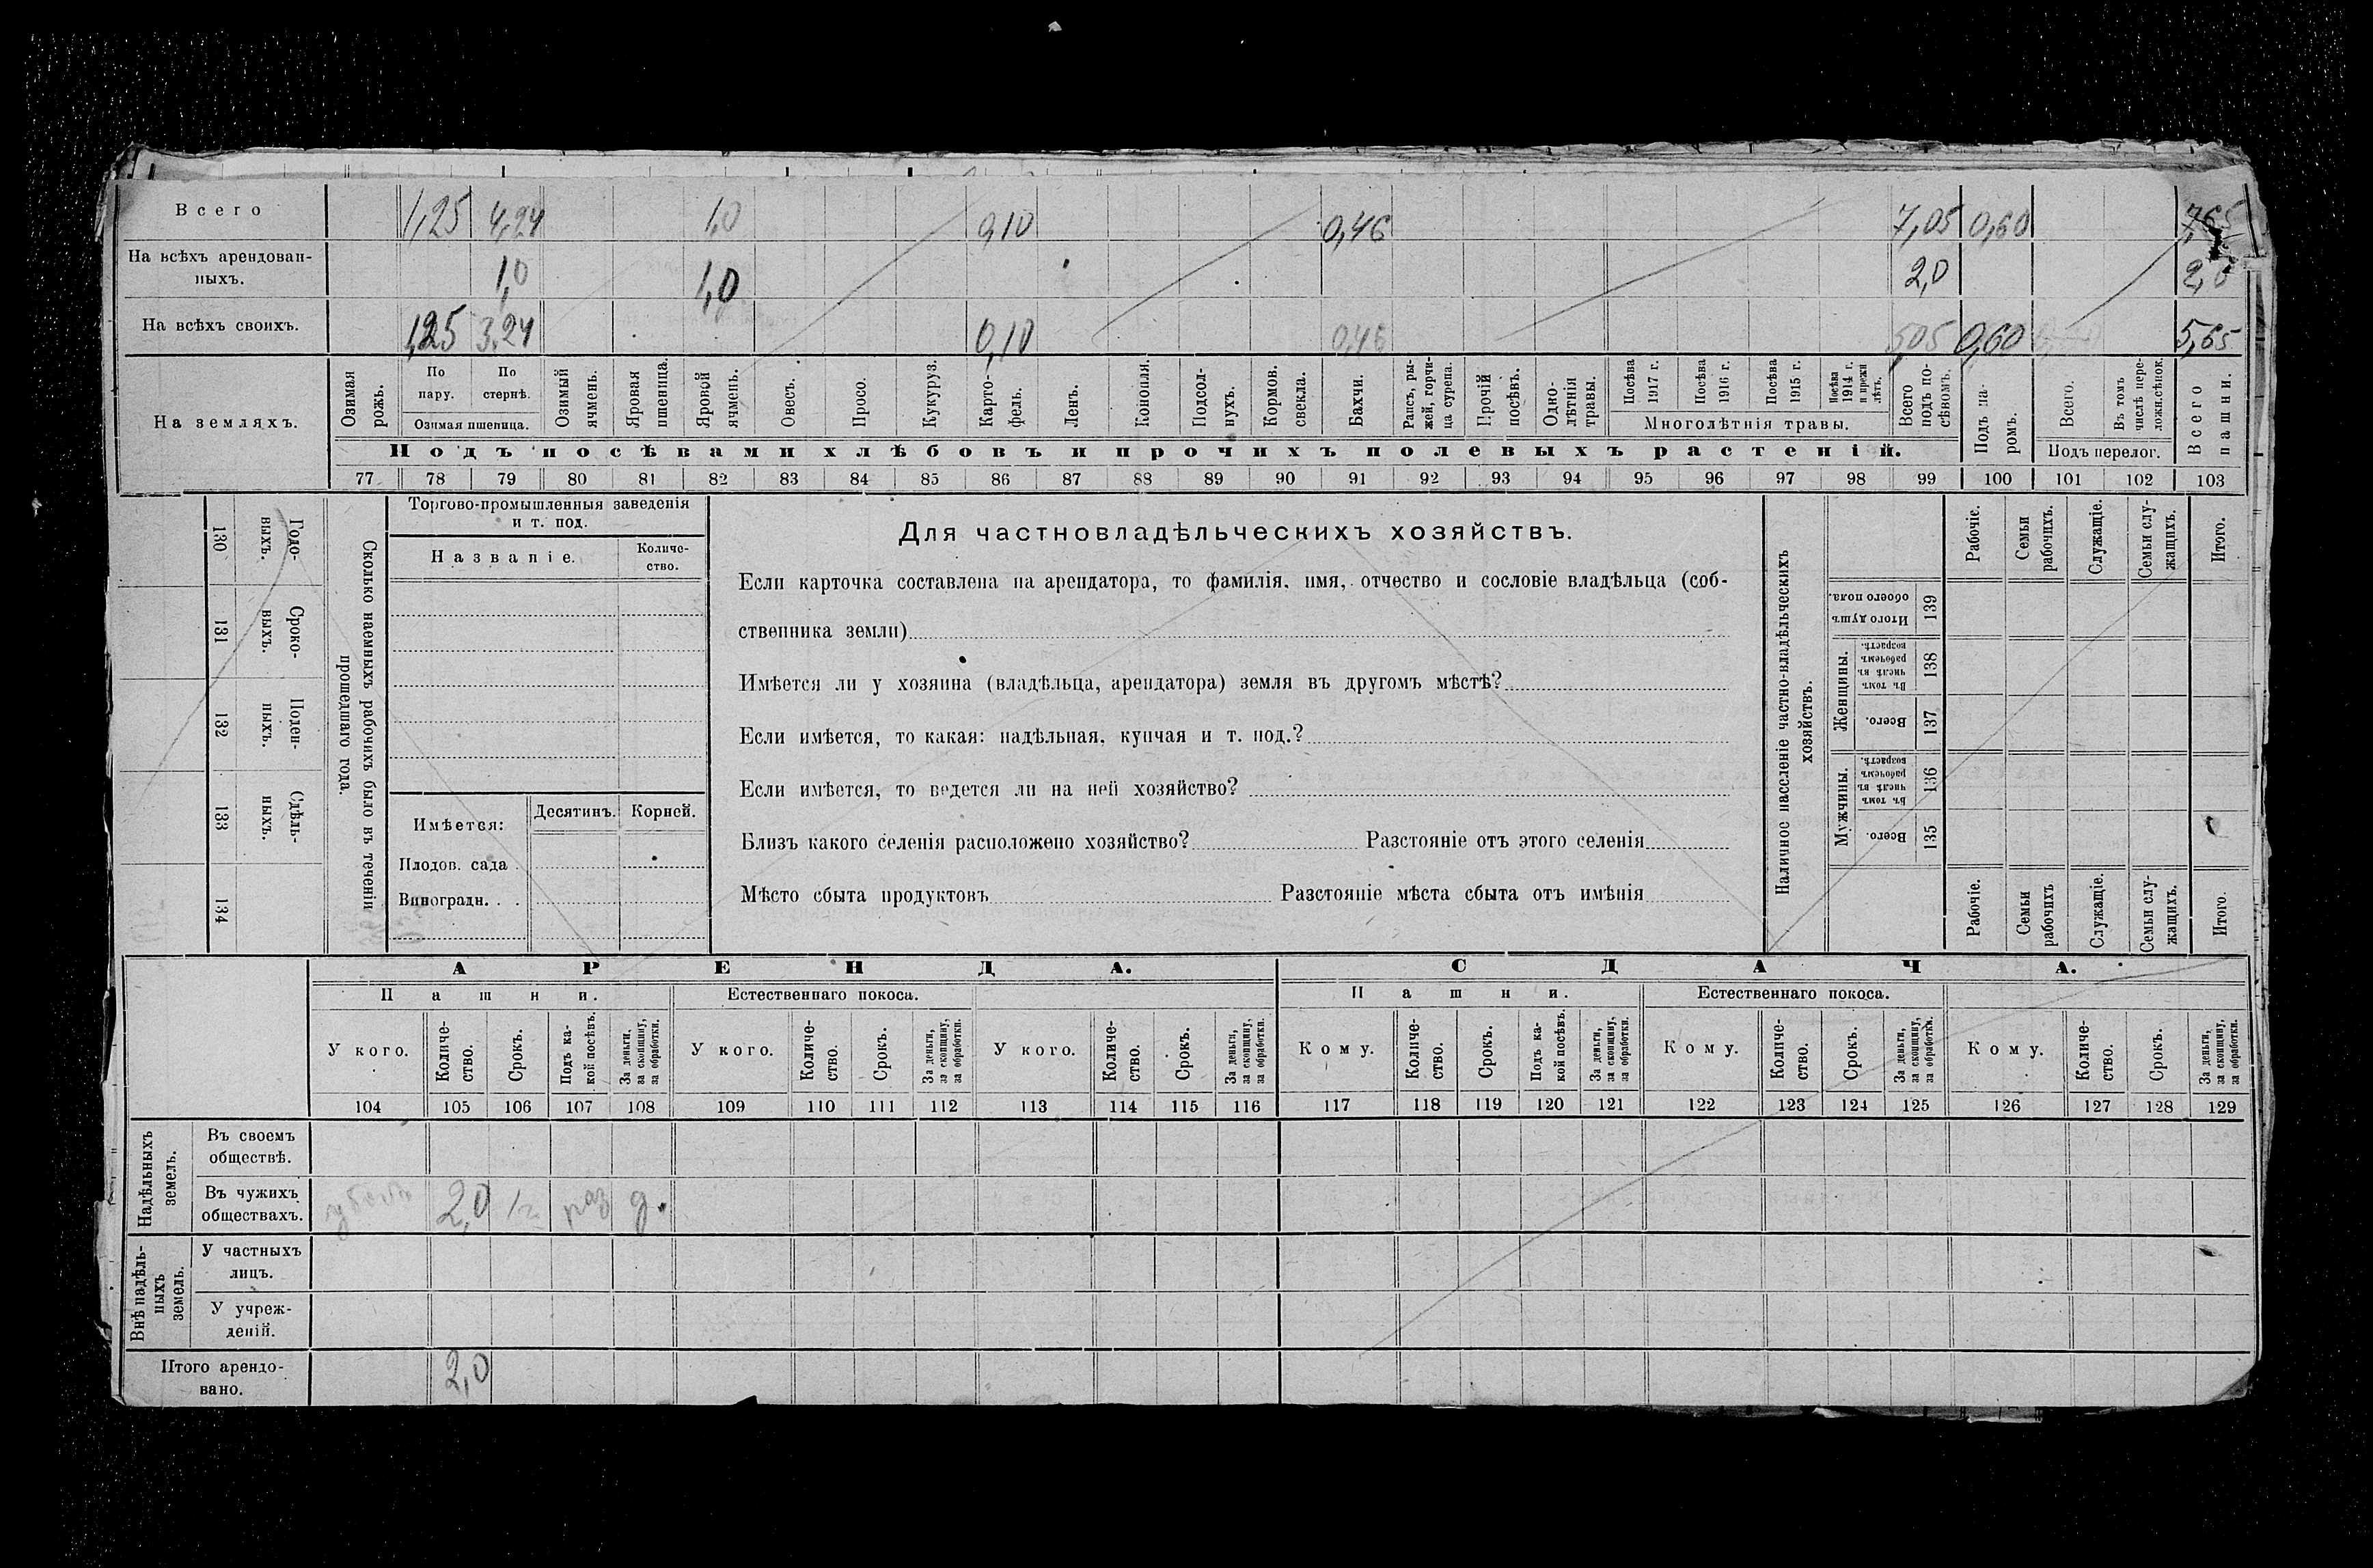 Всего 1,25 4,24 1,0 0,10 0,46 7,05 0,60 7,65
На всѣхъ арендован-
ныхъ. 1,0 1,0 2,0 2,0
На всѣхъ своихъ. 1,25 3,24 0,10 0,46 5,05 0,60 5,65
На земляхъ.
Озимая рожь.
По пару.
По стернѣ.
Озимая пшеница.
Озимый ячмень.
Яровая пшеница.
Яровой ячмень.
Овесъ.
Просо.
Кукуруз.
Карто-
фель.
Ленъ.
Конопля.
Подсол-
нухъ.
Кормов.
свекла.
Бахчи.
Рапсъ, ры-
жей, горчи-
ца сурепа.
Прочій
посѣвъ.
Одно-
лѣтнія
травы.
Посѣва
1917 г.
Посѣва
1916 г.
Посѣва
1915 г.
Посѣва
1914 г.
и прежн
лѣтъ.
Многолѣтнія травы.
Всего
подъ по-
сѣвомъ.
Подъ па-
ромъ.
Всего.
Въ томъ
числѣ пере-
ложн.сѣнок.
Подъ перелог.
Всего
пашни.
Подъ посѣвами хлѣбовъ и прочихъ полевыхъ растеній.
77 78 79 80 81 82 83 84 85 86 87 88 89 90 91 92 93 94 95 96 97 98 99 100 101 102 103
Сколько наемныхъ рабочихъ было въ теченіи
прошедшаго года.
Годо-
выхъ.
130
Сроко-
выхъ.
131
Поден-
ныхъ.
132
Сдѣль-
ныхъ.
133
134
Торгово-промышленныя заведенія
и т. под.
Названіе.
Количе-
ство.
Имѣется:
Десятинъ.
Корней.
Плодов. сада .
Виноградн. . .
Для частновладѣльческихъ хозяйствъ.
Если карточка составлена на арендатора, то фамилія, имя, отчество и сословіе владѣльца (соб-
ственника земли)
Имѣется ли у хозяина (владѣльца, арендатора) земля въ другомъ мѣстѣ?
Если имѣется, то какая: надѣльная, купчая и т. под.?
Если имѣется, то ведется ли на ней хозяйство?
Близъ какого селенія расположено хозяйство? Разстояніе отъ этого селенія
Мѣсто сбыта продуктовъ Разстояніе мѣста сбыта отъ имѣнія
Наличное населеніе частно-владѣльческихъ
хозяйствъ.
Рабочіе.
Семьи
рабочихъ.
Служащіе.
Семьи слу-
жащихъ.
Итого.
Итого душъ
обоего пола.
139
Женщины.
Въ томъ
числѣ въ
рабочемъ
возрастѣ.
138
Всего.
137
Мужчины.
Въ томъ
числѣ въ
рабочемъ
возрастѣ.
136
Всего.
135
Рабочіе.
Семьи
рабочихъ
Служащіе.
Семьи слу-
жащихъ.
Итого.
АРЕНДА. СДАЧА.
Пашни. Естественнаго покоса. Пашни. Естественнаго покоса.
У кого.
Количе-
ство.
Срокъ.
Подъ ка-
кой посѣвъ.
За деньги,
за скопщину,
за обработки.
У кого.
Количе-
ство.
Срокъ.
За деньги,
за скопщину,
за обработки.
У кого.
Количе-
ство.
Срокъ.
За деньги,
за скопщину,
за обработки.
Кому.
Количе-
ство.
Срокъ.
Подъ ка-
кой посѣвъ.
За деньги,
за скопщину,
за обработки.
Кому.
Количе-
ство.
Срокъ.
За деньги,
за скопщину,
за обработки.
Кому.
Количе-
ство.
Срокъ.
За деньги,
за скопщину,
за обработки.
104 105 106 107 108 109 110 111 112 113 114 115 116 117 118 119 120 121 122 123 124 125 126 127 128 129
Надѣльныхъ
земель.
Въ своемъ
обществѣ.
Въ чужихъ
обществахъ. 2,0 раз д.
Внѣ надѣль-
ныхъ
земель.
У частныхъ
лицъ.
У учреж-
деній.
Итого арендо-
вано. 2,0